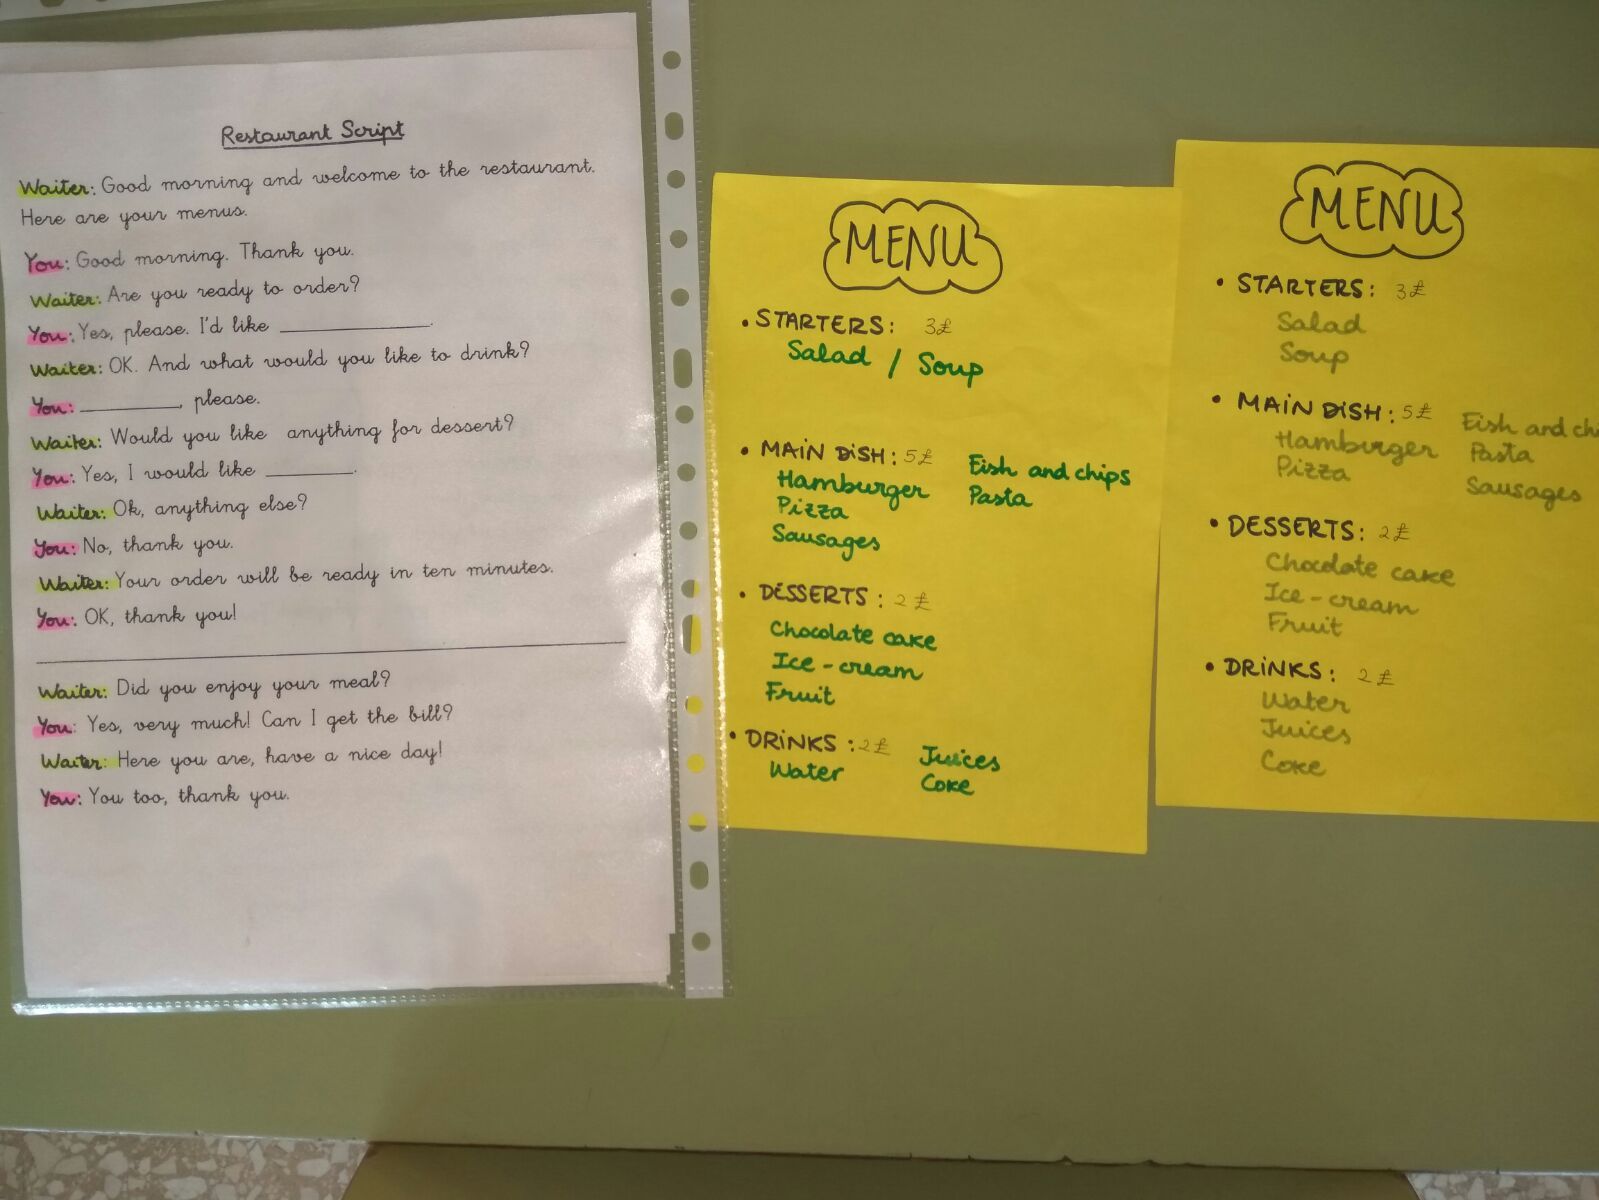 Restaurant Script
Waiter: Good morning and welcome to the restaurant.
Here are your menus.
You: Good morning. Thank you.
Waiter: Are you ready to order?
You: Yes, please. I'd like ____________.
Waiter: OK. And what would you like to drink?
You: ________, please.
Waiter: Would you like anything for dessert?
You: Yes, I would like _______.
Waiter: Ok, anything else?
You: No, thank you.
Waiter: Your order will be ready in ten minutes.
You: OK, thank you!
Waiter: Did you enjoy your meal?
You: Yes, very much! Can I get the bill?
Waiter: Here you are, have a nice day!
You: You too, thank you.
MENU
• STARTERS: 3£
Salad / Soup
• MAIN DISH: 5£
Hamburger
Pizza
Sausages
Fish and chips
Pasta
• DESSERTS: 2£
Chocolate cake
Ice-cream
Fruit
• DRINKS: 2£
Water
Juices
Coke
MENU
• STARTERS: 3£
Salad
Soup
• MAIN DISH: 5£
Hamburger
Pizza
Fish and chi
Pasta
Sausages
• DESSERTS: 2£
Chocolate cake
Ice-cream
Fruit
• DRINKS: 2£
Water
Juices
Coke